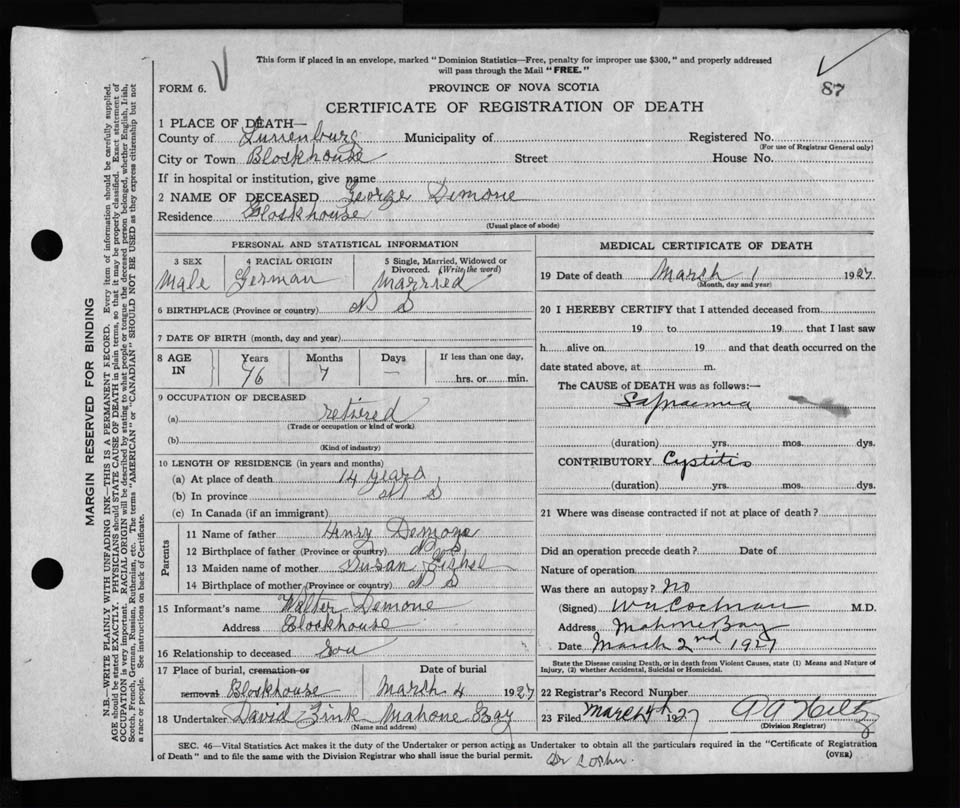 This form if placed in an envelope, marked "Dominion Statistics—Free, penalty for improper use $300," and properly addressed
will pass through the Mail "FREE."
87
FORM 6.
PROVINCE OF NOVA SCOTIA
CERTIFICATE OF REGISTRATION OF DEATH
1 PLACE OF DEATH—
County of Lunenburg Municipality of Registered No.
(For use of Registrar General only)
City or Town Blockhouse Street House No.
If in hospital or institution, give name
2 NAME OF DECEASED George Demone
Residence Blockhouse
(Usual place of abode)
PERSONAL AND STATISTICAL INFORMATION
3 SEX 4 RACIAL ORIGIN 5 Single, Married, Widowed or
Divorced. (Write the word)
Male German Married
6 BIRTHPLACE (Province or country) N S
7 DATE OF BIRTH (month, day and year)
8 AGE Years Months Days If less than one day,
IN 76 7 — hrs. or min.
9 OCCUPATION OF DECEASED
(a) retired
(Trade or occupation or kind of work)
(b)
(Kind of industry)
10 LENGTH OF RESIDENCE (in years and months)
(a) At place of death 14 years
(b) In province N S
(c) In Canada (if an immigrant)
Parents
11 Name of father Henry Demone
12 Birthplace of father (Province or country) N S
13 Maiden name of mother Susan
14 Birthplace of mother (Province or country) N S
15 Informant's name Walter Demone
Address Blockhouse
16 Relationship to deceased Son
17 Place of burial, cremation or Date of burial
removal Blockhouse March 4 1927
18 Undertaker David Zink Mahone Bay
(Name and address)
MEDICAL CERTIFICATE OF DEATH
19 Date of death March 1 1927
(Month, day and year)
20 I HEREBY CERTIFY that I attended deceased from
19 to 19 that I last saw
h alive on 19 and that death occurred on the
date stated above, at m.
The CAUSE of DEATH was as follows:—
Sapraemia
(duration) yrs. mos. dys.
CONTRIBUTORY Cystitis
(duration) yrs. mos. dys.
21 Where was disease contracted if not at place of death?
Did an operation precede death? Date of
Nature of operation
Was there an autopsy? No
(Signed) M.D.
Address Mahone Bay
Date March 2nd 1927
State the Disease causing Death, or in death from Violent Causes, state (1) Means and Nature of
Injury, (2) whether Accidental, Suicidal or Homicidal.
22 Registrar's Record Number
23 Filed March 4th 1927
(Division Registrar)
SEC. 46—Vital Statistics Act makes it the duty of the Undertaker or person acting as Undertaker to obtain all the particulars required in the "Certificate of Registration
of Death" and to file the same with the Division Registrar who shall issue the burial permit. (OVER)
MARGIN RESERVED FOR BINDING
N.B.—WRITE PLAINLY WITH UNFADING INK—THIS IS A PERMANENT RECORD. Every item of information should be carefully supplied.
AGE should be stated EXACTLY. PHYSICIANS should STATE CAUSE OF DEATH in plain terms, so that it may be properly classified. Exact statement of
OCCUPATION is very important. RACIAL ORIGIN will be described by stating to what people or tongue the deceased person belonged, whether English, Irish,
Scotch, French, German, Russian, Ruthenian, etc. The terms "AMERICAN" or "CANADIAN" SHOULD NOT BE USED as they express citizenship but not
a race or people. See instructions on back of Certificate.